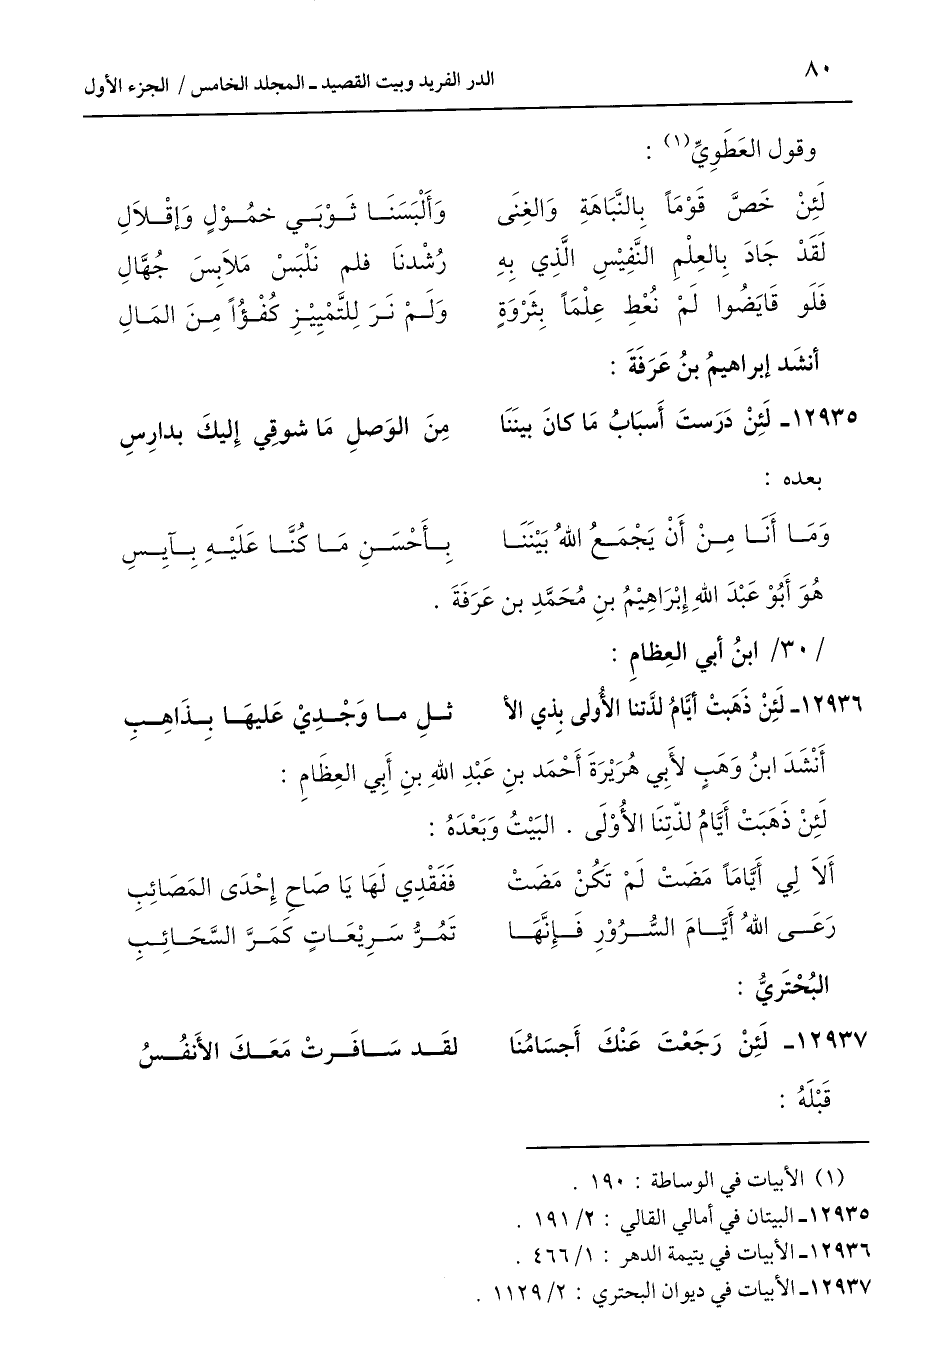 ٨٠
الدر الفريد وبيت القصيد ـ المجلد الخامس / الجزء الأول
وقول العَطَوِيِّ(١) :
لَئِنْ خَصَّ قَوْمَاً بِالنَّبَاهَةِ وَالغِنَى وَأَلْبَسَنَا ثَوْبَي خمُوْلٍ وَإقْلاَلِ
لَقَدْ جَادَ بِالعِلْمِ النَّفِيْسِ الَّذِي بِهِ رُشْدنَا فلم نَلْبَسْ مَلاَبِسَ جُهَّالِ
فَلَو قَايَضُوا لَمْ نُعْطِ عِلْمَاً بِثَرْوَةٍ وَلَمْ نَرَ لِلتَّمْيِيْزِ كُفْؤاً مِنَ المَالِ
أنشَد إبراهيمُ بنُ عَرَفَةَ :
١٢٩٣٥ـ لَئِنْ دَرَستَ أسبَابُ مَا كانَ بيننَا مِنَ الوَصلِ مَا شوقِي إليكَ بدارِسِ
بعده :
وَمَا أَنَا مِنْ أَنْ يَجْمَعُ اللهُ بَيْنَنَا بِأَحْسَنِ مَا كُنَّا عَلَيْهِ بِآيِسِ
هُوَ أَبُوْ عَبْدَ اللهِ إبْرَاهِيْمُ بنِ مُحَمَّدِ بن عَرَفَةَ .
/ ٣٠/ ابنُ أبي العِظامِ :
١٢٩٣٦ـ لَئِنْ ذَهَبتْ أيَّامُ لذَّتنا الأُولى بِذي الأ ثلِ ما وَجْدِيْ عَليهَا بِذَاهِبِ
أَنْشَدَ ابنُ وَهَبٍ لأَبِي هُرَيْرَةَ أَحْمَد بنِ عَبْدِ اللهِ بنِ أَبِي العِظَامِ :
لَئِنْ ذَهَبَتْ أَيَّامُ لذّتِنَا الأُوْلَى . البَيْتُ وَبَعْدَهُ :
أَلاَ لِي أَيَّامَاً مَضَتْ لَمْ تَكُنْ مَضَتْ فَفَقْدِي لَهَا يَا صَاحِ إحْدَى المَصَائِبِ
رَعَى اللهُ أَيَّامَ السُّرُوْرِ فَإنَّهَا تَمُرُّ سَرِيْعَاتٍ كَمَرَّ السَّحَائِبِ
البُحْتَرِيُّ :
١٢٩٣٧ـ لَئِنْ رَجَعْتَ عَنْكَ أجسَامُنَا لقَد سَافَرتْ مَعَكَ الأَنفُسُ
قَبْلَهُ :
(١) الأبيات في الوساطة : ١٩٠ .
١٢٩٣٥ـ البيتان في أمالي القالي : ٢/ ١٩١ .
١٢٩٣٦ـ الأبيات في يتيمة الدهر : ١/ ٤٦٦ .
١٢٩٣٧ـ الأبيات في ديوان البحتري : ٢/ ١١٢٩ .